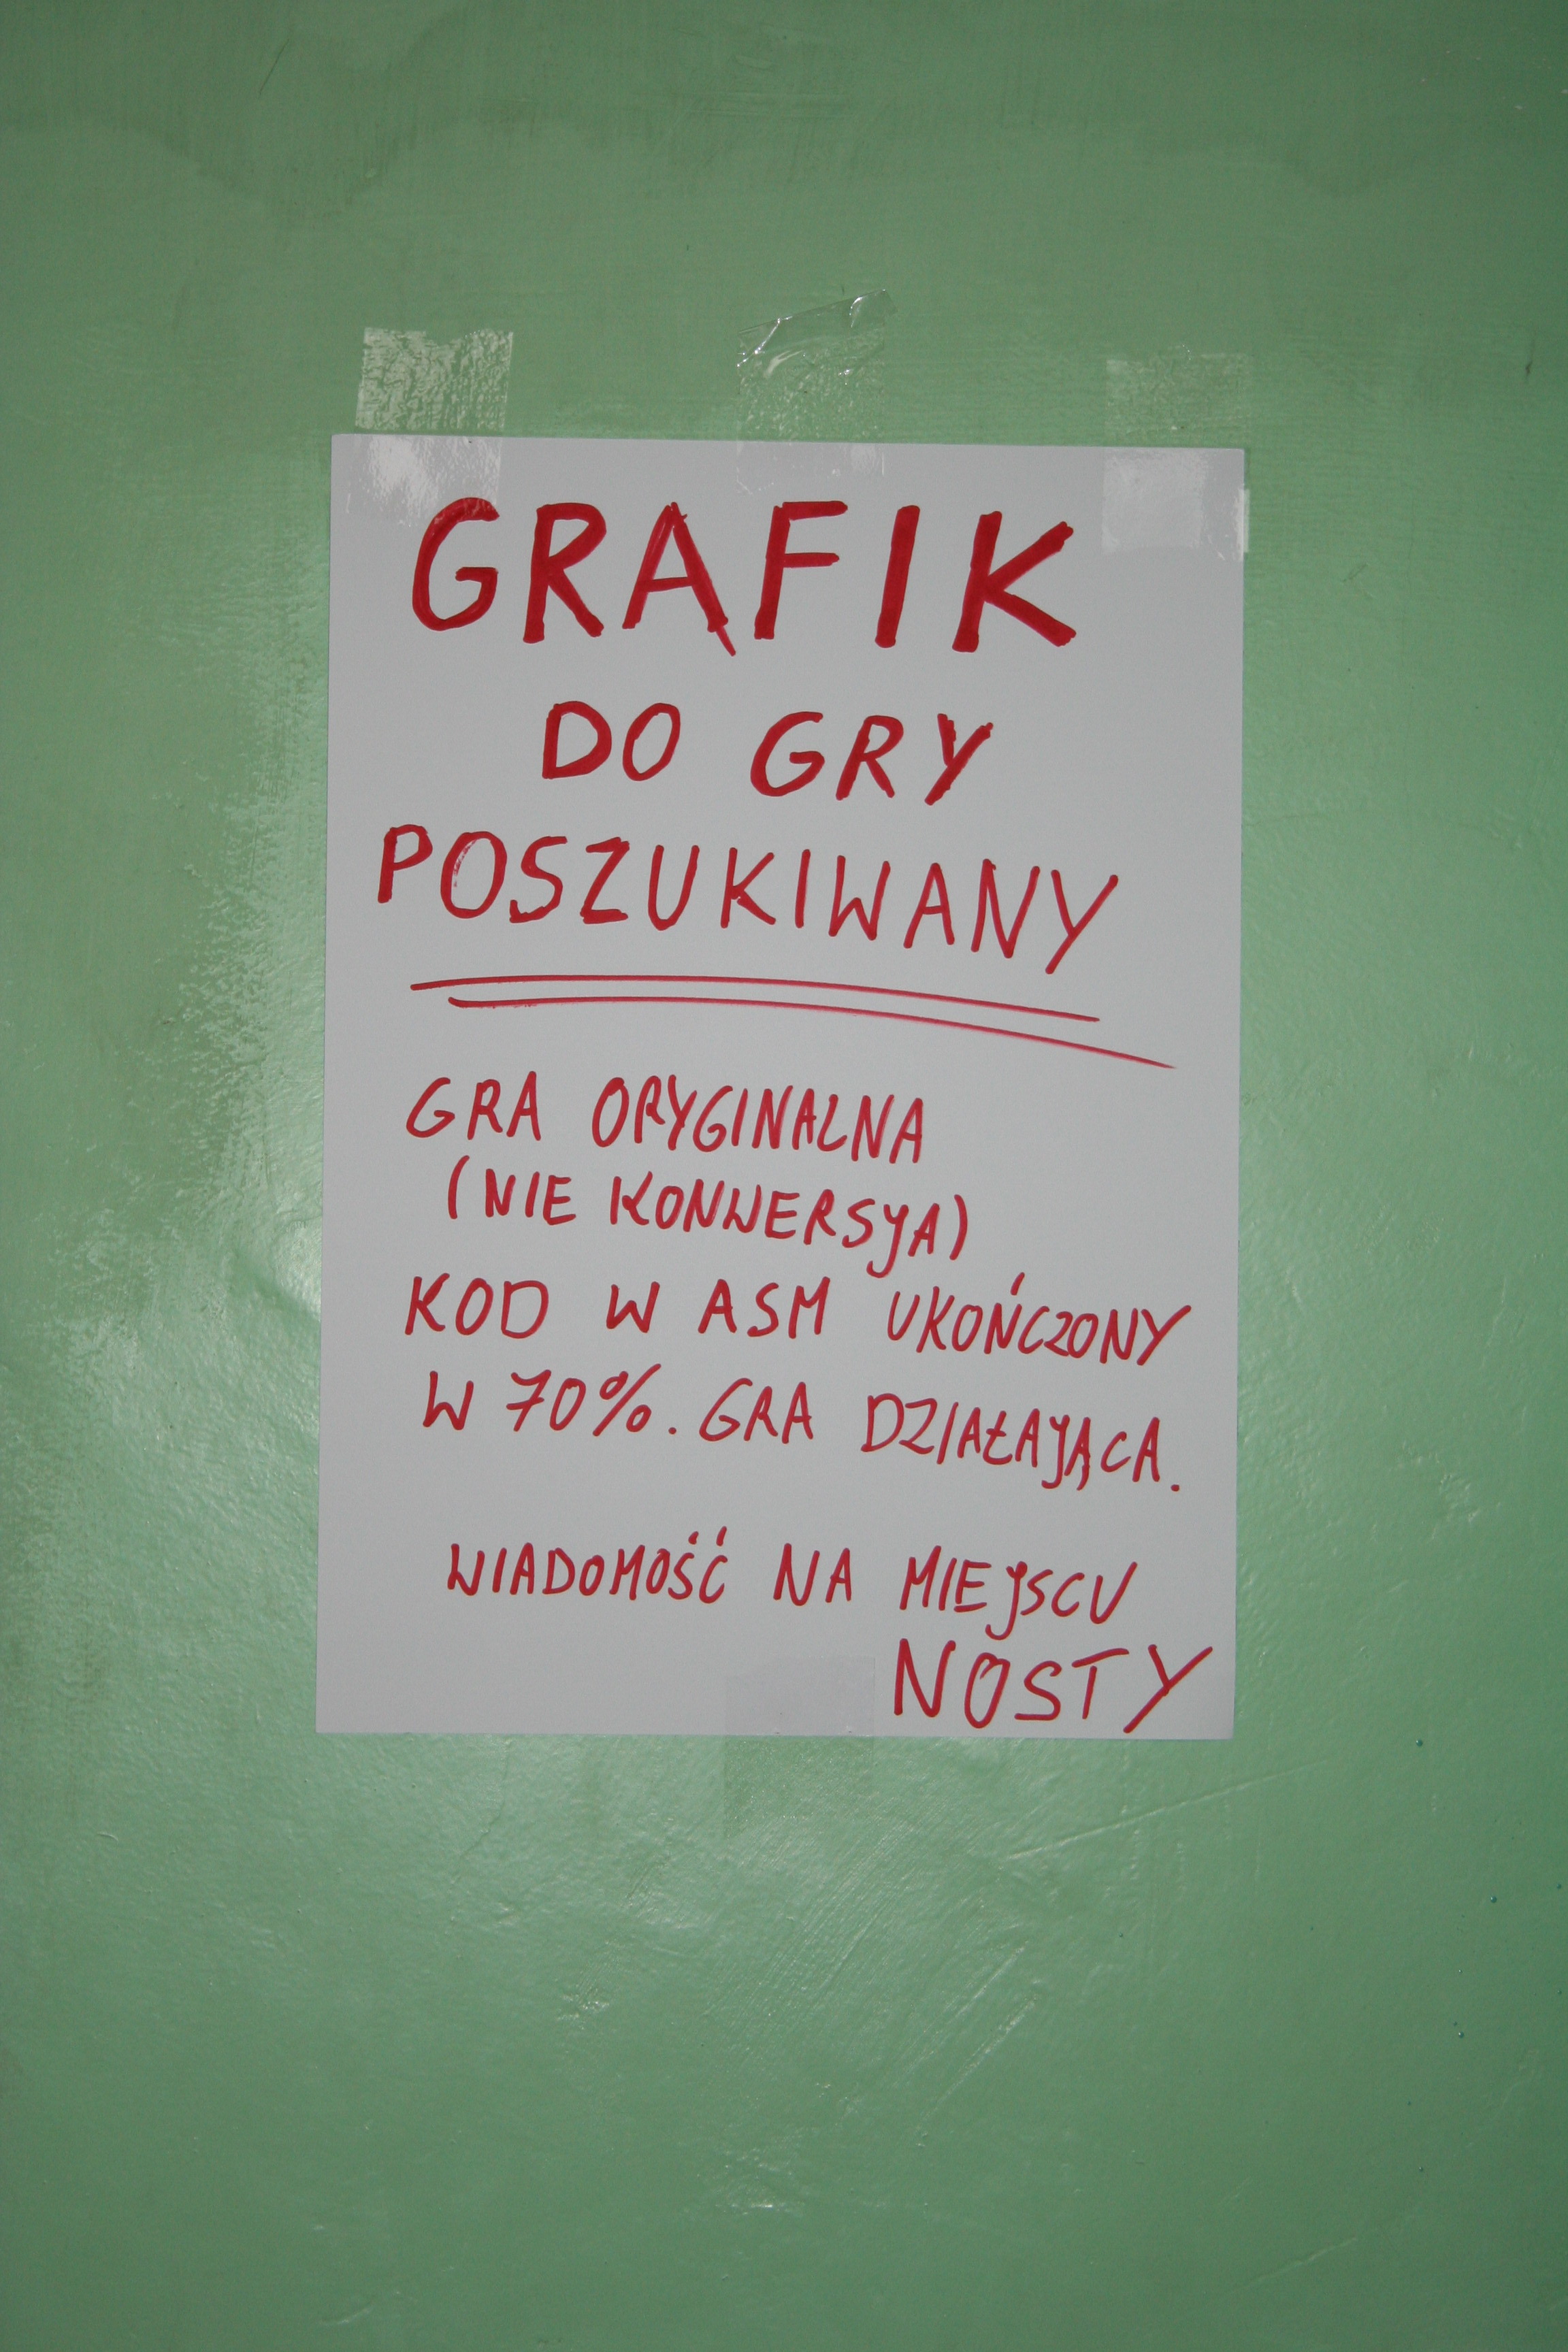 GRAFIK
DO GRY
POSZUKIWANY
GRA ORYGINALNA
(NIE KONWERSJA)
KOD W ASM UKOŃCZONY
W 70%. GRA DZIAŁAJĄCA.
WIADOMOŚĆ NA MIEJSCU
NOSTY